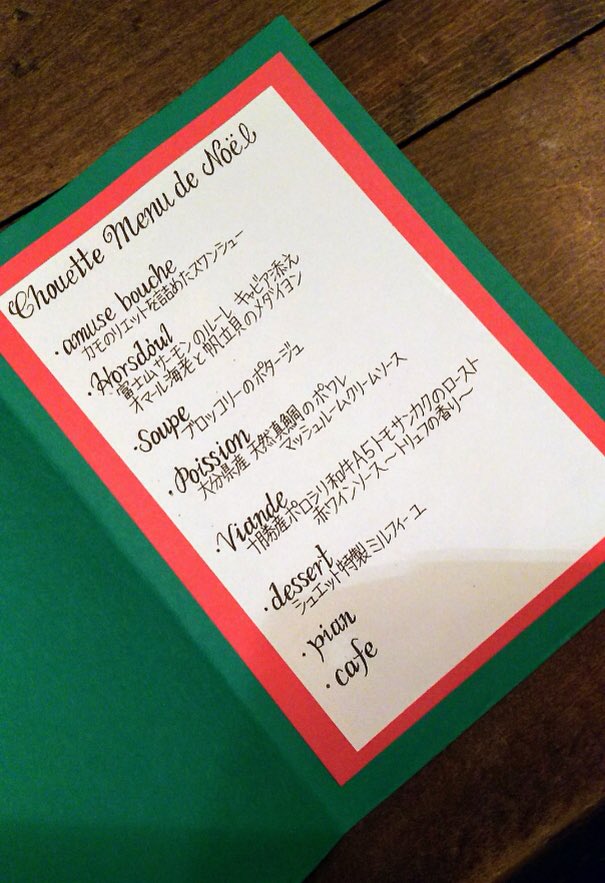 Chouette Menu de Noël
・amuse bouche
カモのリエットを詰めたスワンシュー
・Horsdoul
富士山サーモンのルーレ キャビア添え
オマール海老と帆立貝のメダイヨン
・Soupe
ブロッコリーのポタージュ
・Poission
大分県産 天然真鯛のポワレ
マッシュルームクリームソース
・Viande
十勝産ポロシリ和牛A5トモサンカクのロースト
赤ワインソース〜トリュフの香り〜
・dessert
シュエット特製ミルフィーユ
・pian
・cafe